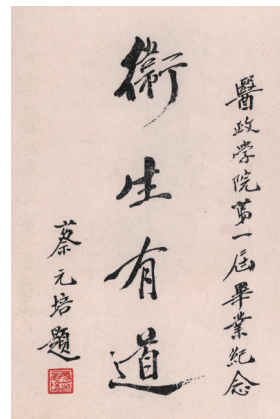 醫政学院第一屆畢業紀念
衛生有道
蔡元培題